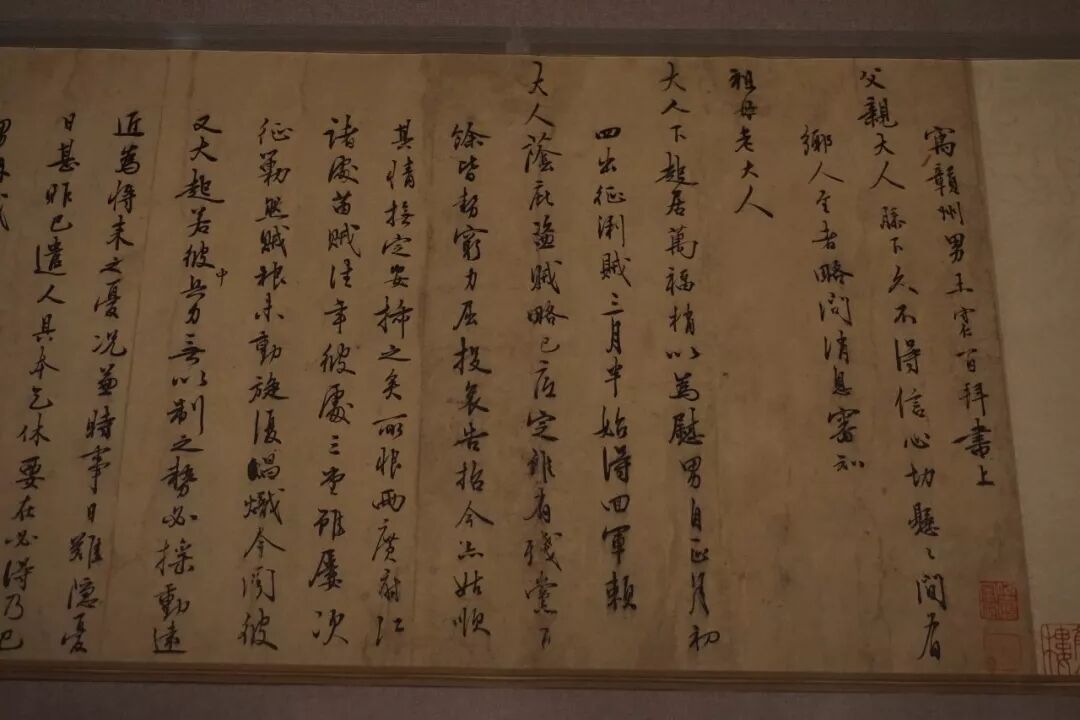 寓贛州男王守仁百拜書上
父親大人膝下久不得信心切懸〻間有
鄉人至者略問消息審知
祖母老大人
大人下起居萬福稍以為慰男自正月初
四出征浰賊三月半始得回軍賴
大人蔭庇盜賊略已底定雖有殘黨百
餘皆勢窮力屈投哀告招今亦姑順
其情撫定安插之矣所恨兩廣府江
諸處苗賊往年彼處三堂雖屢次
征勦然賊根未動旋復昌熾今聞彼
又大起若彼中兵力無以制之勢必搖動遠
近為將來之憂況兼時事日難隱憂
日甚昨已遣人具本乞休要在必得乃已
男